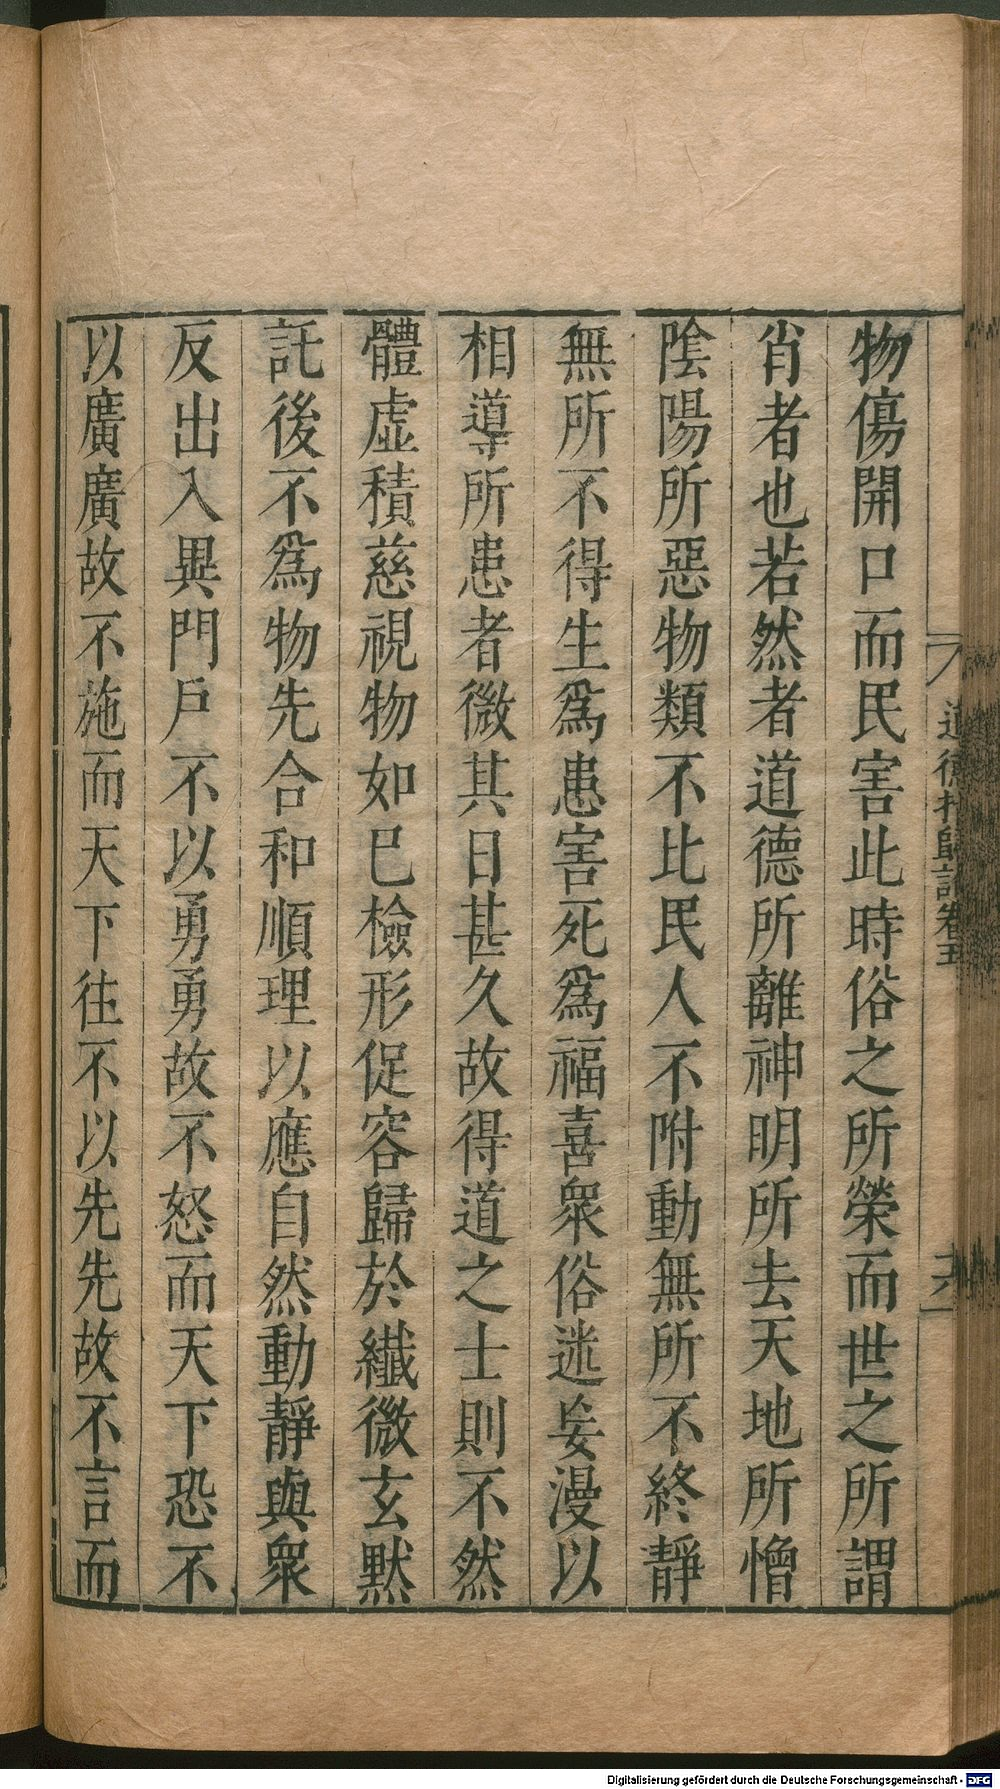 物傷開口而民害此時俗之所榮而世之所謂
肖者也若然者道德所離神明所去天地所憎
陰陽所惡物類不比民人不附動無所不終靜
無所不得生爲患害死爲福喜衆俗迷妄漫以
相導所患者微其日甚久故得道之士則不然
體虛積慈視物如己檢形促容歸於纖微玄默
託後不爲物先合和順理以應自然動靜與衆
反出入異門戶不以勇勇故不怒而天下恐不
以廣廣故不施而天下往不以先先故不言而
道德指歸論卷五
Digitalisierung gefördert durch die Deutsche Forschungsgemeinschaft - DFG